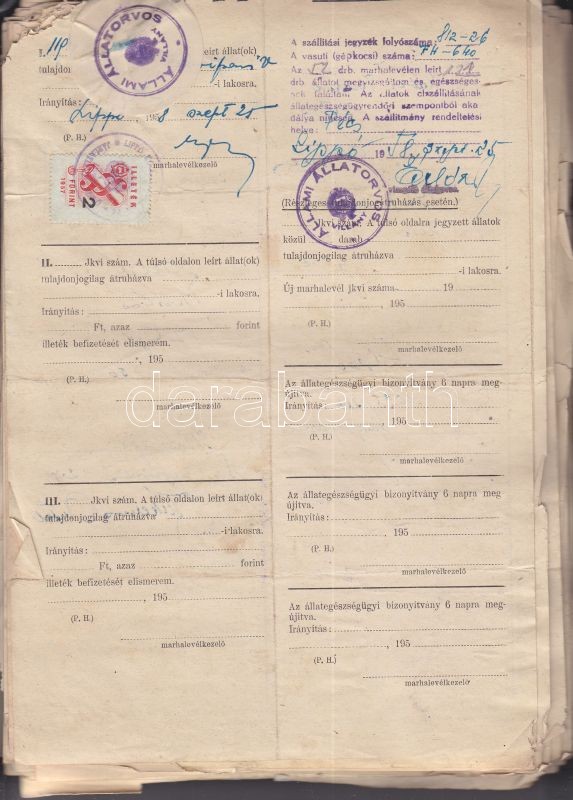 I. 119 leírt állat(ok)
tulajdon
-i lakosra.
Irányítás:
Lippó, 1958 szept 25
(P. H.)
marhalevélkezelő
ÁLLAMI ÁLLATORVOS
VILLÁNY
ILLETÉK
2 FORINT
1957
II. Jkvi szám. A túlsó oldalon leírt állat(ok)
tulajdonjogilag átruházva
-i lakosra.
Irányítás:
Ft, azaz forint
illeték befizetését elismerem.
, 195
(P. H.)
marhalevélkezelő
III. Jkvi szám. A túlsó oldalon leírt állat(ok)
tulajdonjogilag átruházva
-i lakosra.
Irányítás:
Ft, azaz forint
illeték befizetését elismerem.
, 195
(P. H.)
marhalevélkezelő
A szállítási jegyzék folyószáma: 812-26
A vasuti (gépkocsi) száma: FH-640
Az drb. marhalevélen leirt
drb állatot megvizsgáltam és egészséges-
nek találtam. Az állatok elszállításának
állategészségügyrendőri szempontból aka
dálya nincsen. A szállítmány rendeltetési
helye: Pécs
Lippó, 1958 szept. 25
ÁLLAMI ÁLLATORVOS
VILLÁNY
(Részleges tulajdonjogátruházás esetén.)
Jkvi szám. A túlsó oldalra jegyzett állatok
közül darab
tulajdonjogilag átruházva
-i lakosra.
Új marhalevél jkvi száma 19
, 195
(P. H.)
marhalevélkezelő
Az állategészségügyi bizonyítvány 6 napra meg-
újítva.
Irányítás:
, 195
(P. H.)
marhalevélkezelő
Az állategészségügyi bizonyítvány 6 napra meg
újítva.
Irányítás:
, 195
(P. H.)
marhalevélkezelő
Az állategészségügyi bizonyítvány 6 napra meg-
újítva.
Irányítás:
, 195
(P. H.)
marhalevélkezelő
darabanth